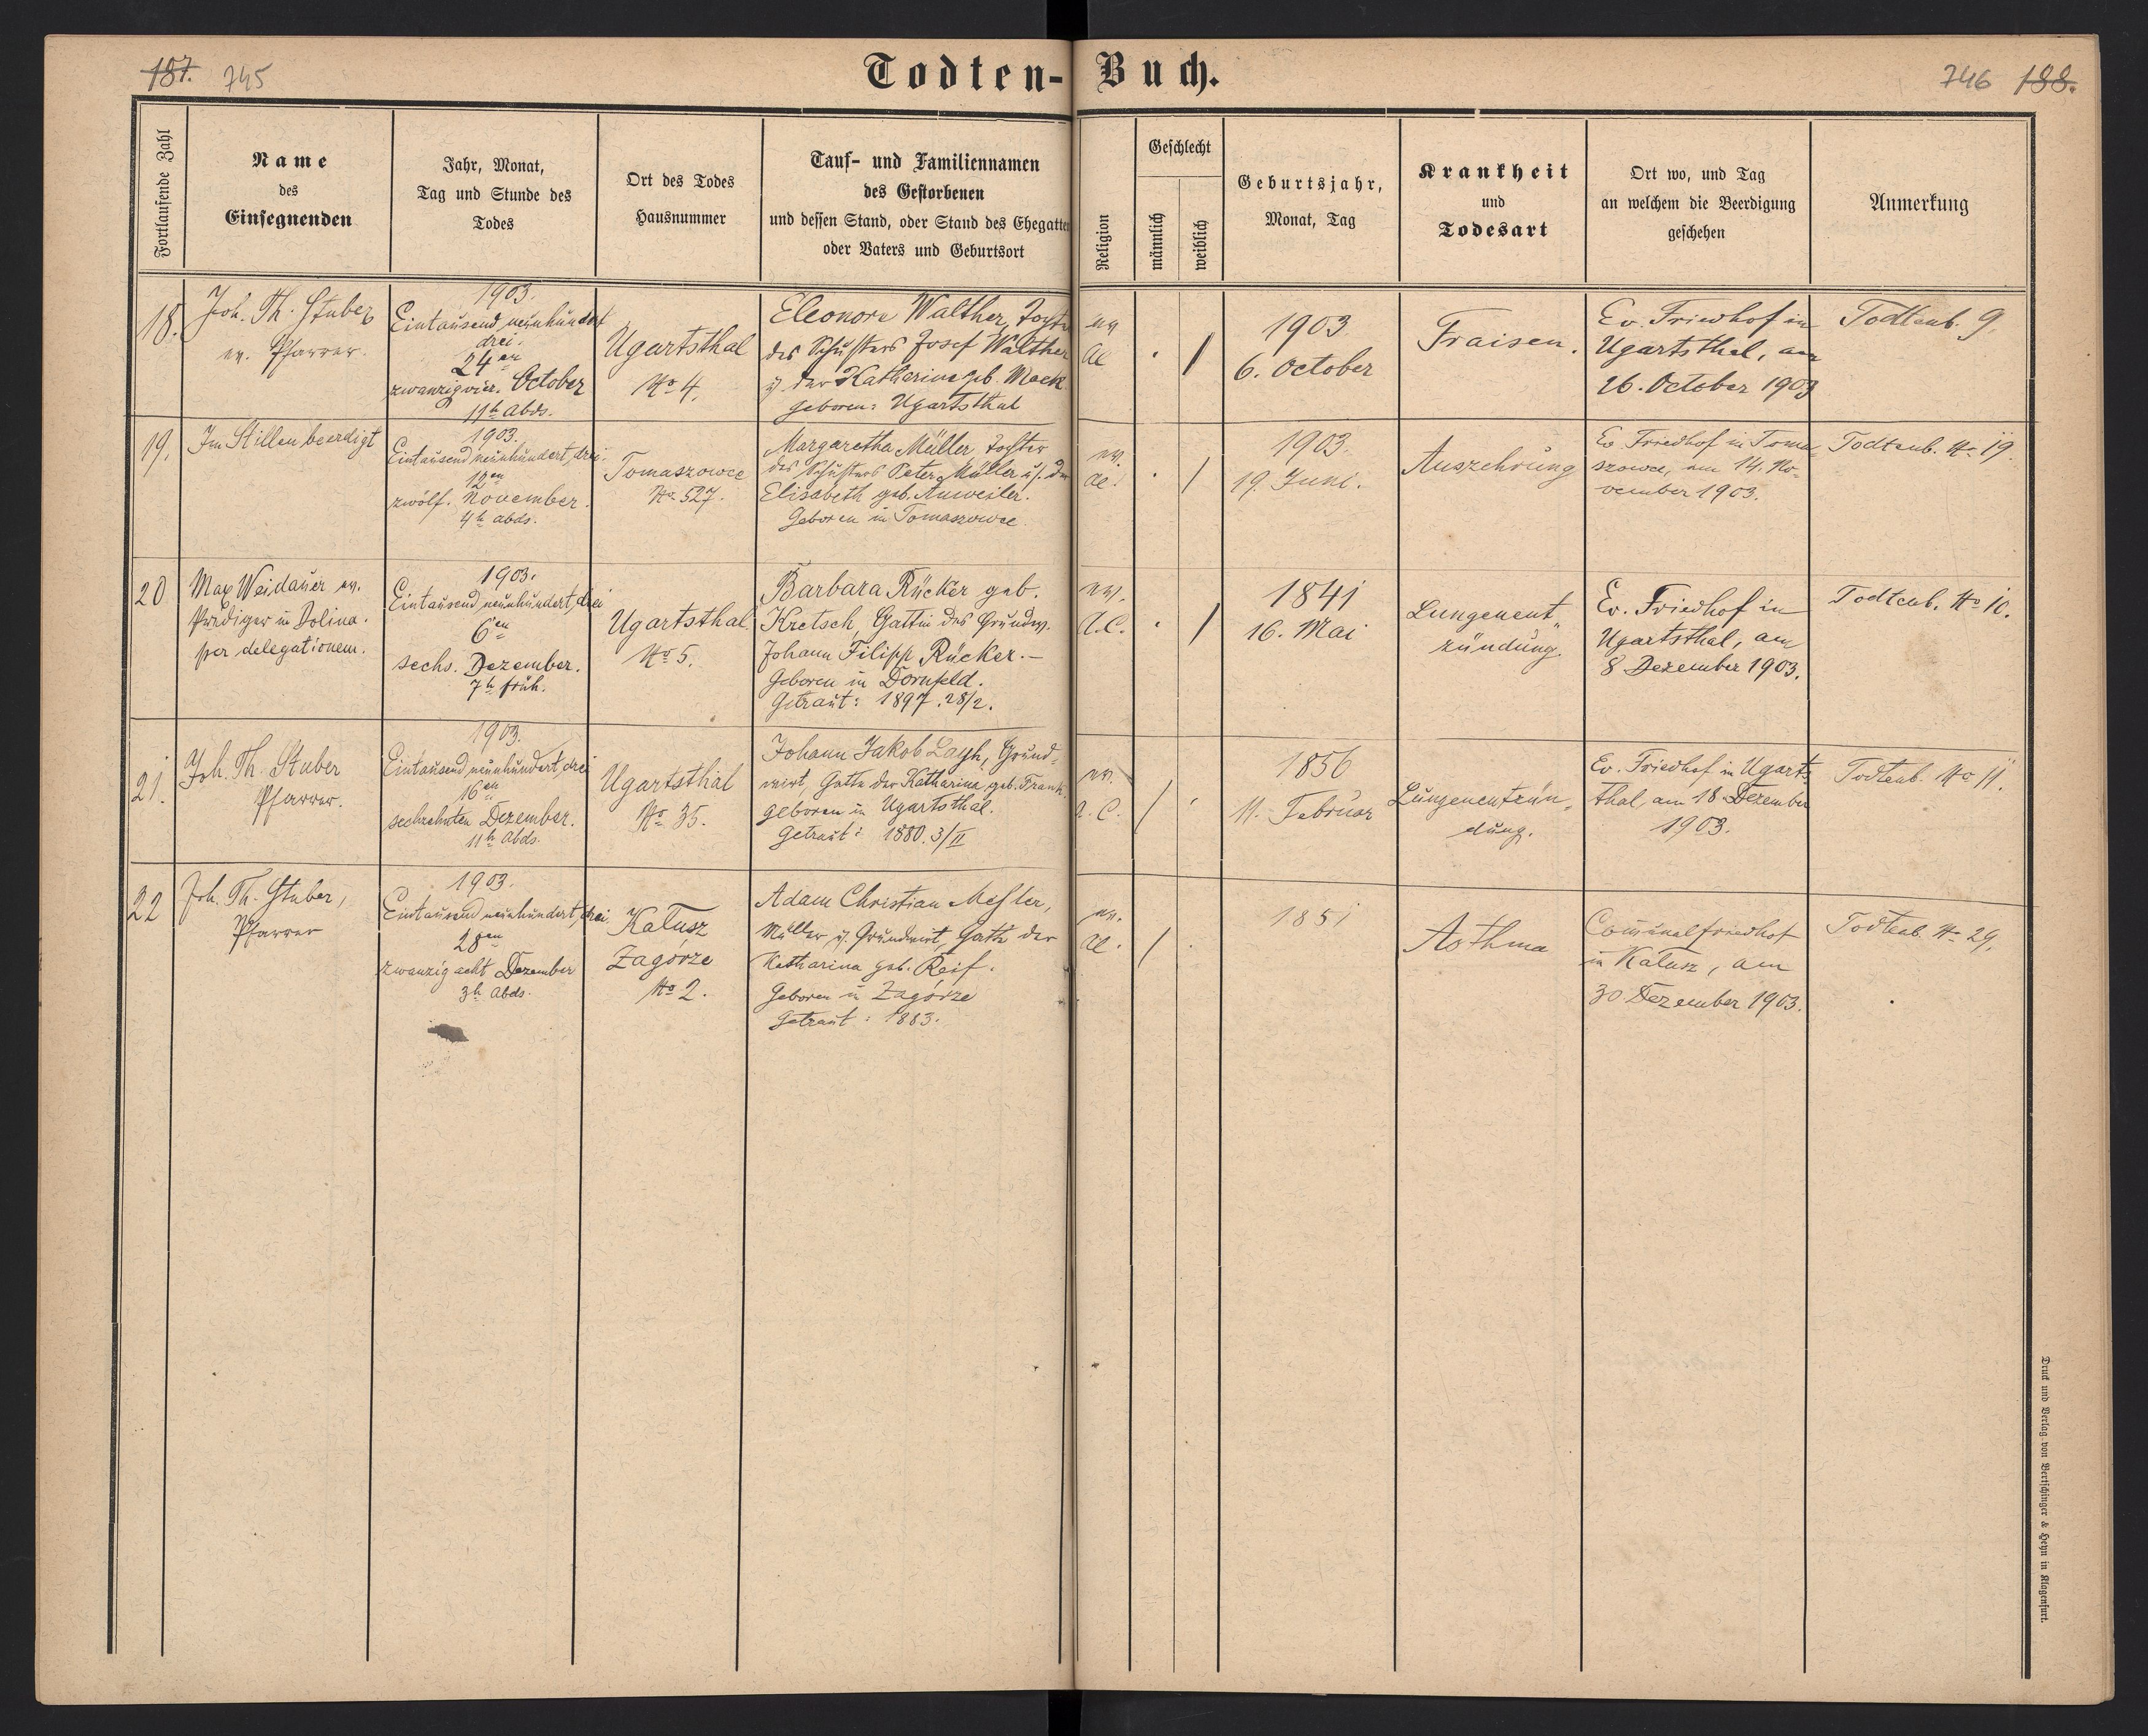 187. 745
Todten-Buch.
746 188.
Fortlaufende Zahl
Name
des
Einsegnenden
Jahr, Monat,
Tag und Stunde des
Todes
Ort des Todes
Hausnummer
Tauf- und Familiennamen
des Gestorbenen
und dessen Stand, oder Stand des Ehegatten
oder Vaters und Geburtsort
Religion
Geschlecht
männlich
weiblich
Geburtsjahr,
Monat, Tag
Krankheit
und
Todesart
Ort wo, und Tag
an welchem die Beerdigung
geschehen
Anmerkung
18.
Joh. Th. Stuber
ev. Pfarrer.
1903.
Eintausend neunhundert
drei.
24en
zwanzigvier. October
11h Abds.
Ugartsthal
No 4.
Eleonore Walther, Tochter
des Schusters Josef Walther
u. der Katharina geb. Mock
geboren: Ugartsthal
ev
ac
1903
6. October
Fraisen.
Ev. Friedhof in
Ugartsthal, am
26. October 1903
Todtenb. 9.
19.
Im Stillen beerdigt
1903.
Eintausend neunhundert, drei.
12en
zwölf. November.
4h abds.
Tomaszowce
No 527.
Margaretha Müller, Tochter
des Schusters Peter Müller u. der
Elisabeth geb. Anweiler.
Geboren in Tomaszowce
ev.
ac.
1903.
19. Juni.
Auszehrung
Ev Friedhof in Toma
szowce, am 14. No-
vember 1903.
Todtenb. No 19.
20
Max Weidauer ev.
Prediger in Dolina.
per delegationem.
1903.
Eintausend neunhundert, drei
6en
sechs. Dezember.
7h früh.
Ugartsthal
No 5.
Barbara Rücker geb.
Kretsch, Gattin des Grundw.
Johann Filipp Rücker.—
Geboren in Dornfeld.
Getraut: 1897. 28/2.
ev.
A.C.
1841
16. Mai
Lungenent-
zündung.
Ev. Friedhof in
Ugartsthal, am
8 Dezember 1903.
Todtenb. No 10.
21.
Joh. Th. Stuber
Pfarrer.
1903.
Eintausend neunhundert, drei
16en
sechzehnten Dezember.
11h Abds.
Ugartsthal
No 35.
Johann Jakob Grund-
wirt, Gatte der Katharina, geb. Frank.
geboren in Ugartsthal.
Getraut: 1880. 3/II
ev.
A.C.
1856
11. Februar
Lungenentzün-
dung.
Ev. Friedhof in Ugarts
thal, am 18 Dezember
1903.
Todtenb. No 11.
22
Joh. Th. Stuber,
Pfarrer
1903.
Eintausend neunhundert, drei
28en
zwanzig acht Dezember
3h Abds.
Kałusz
Zagórze
No 2.
Adam Christian Meßler,
Müller u. Grundwirt, Gatte der
Katharina geb. Reif.
Geboren in Zagórze
Getraut: 1883.
ev.
ac.
1851
Asthma
Com̄unalfriedhof
in Kałusz, am
30 Dezember 1903.
Todtenb. No 29.
Druck und Verlag von Bertschinger & Heyn in Klagenfurt.